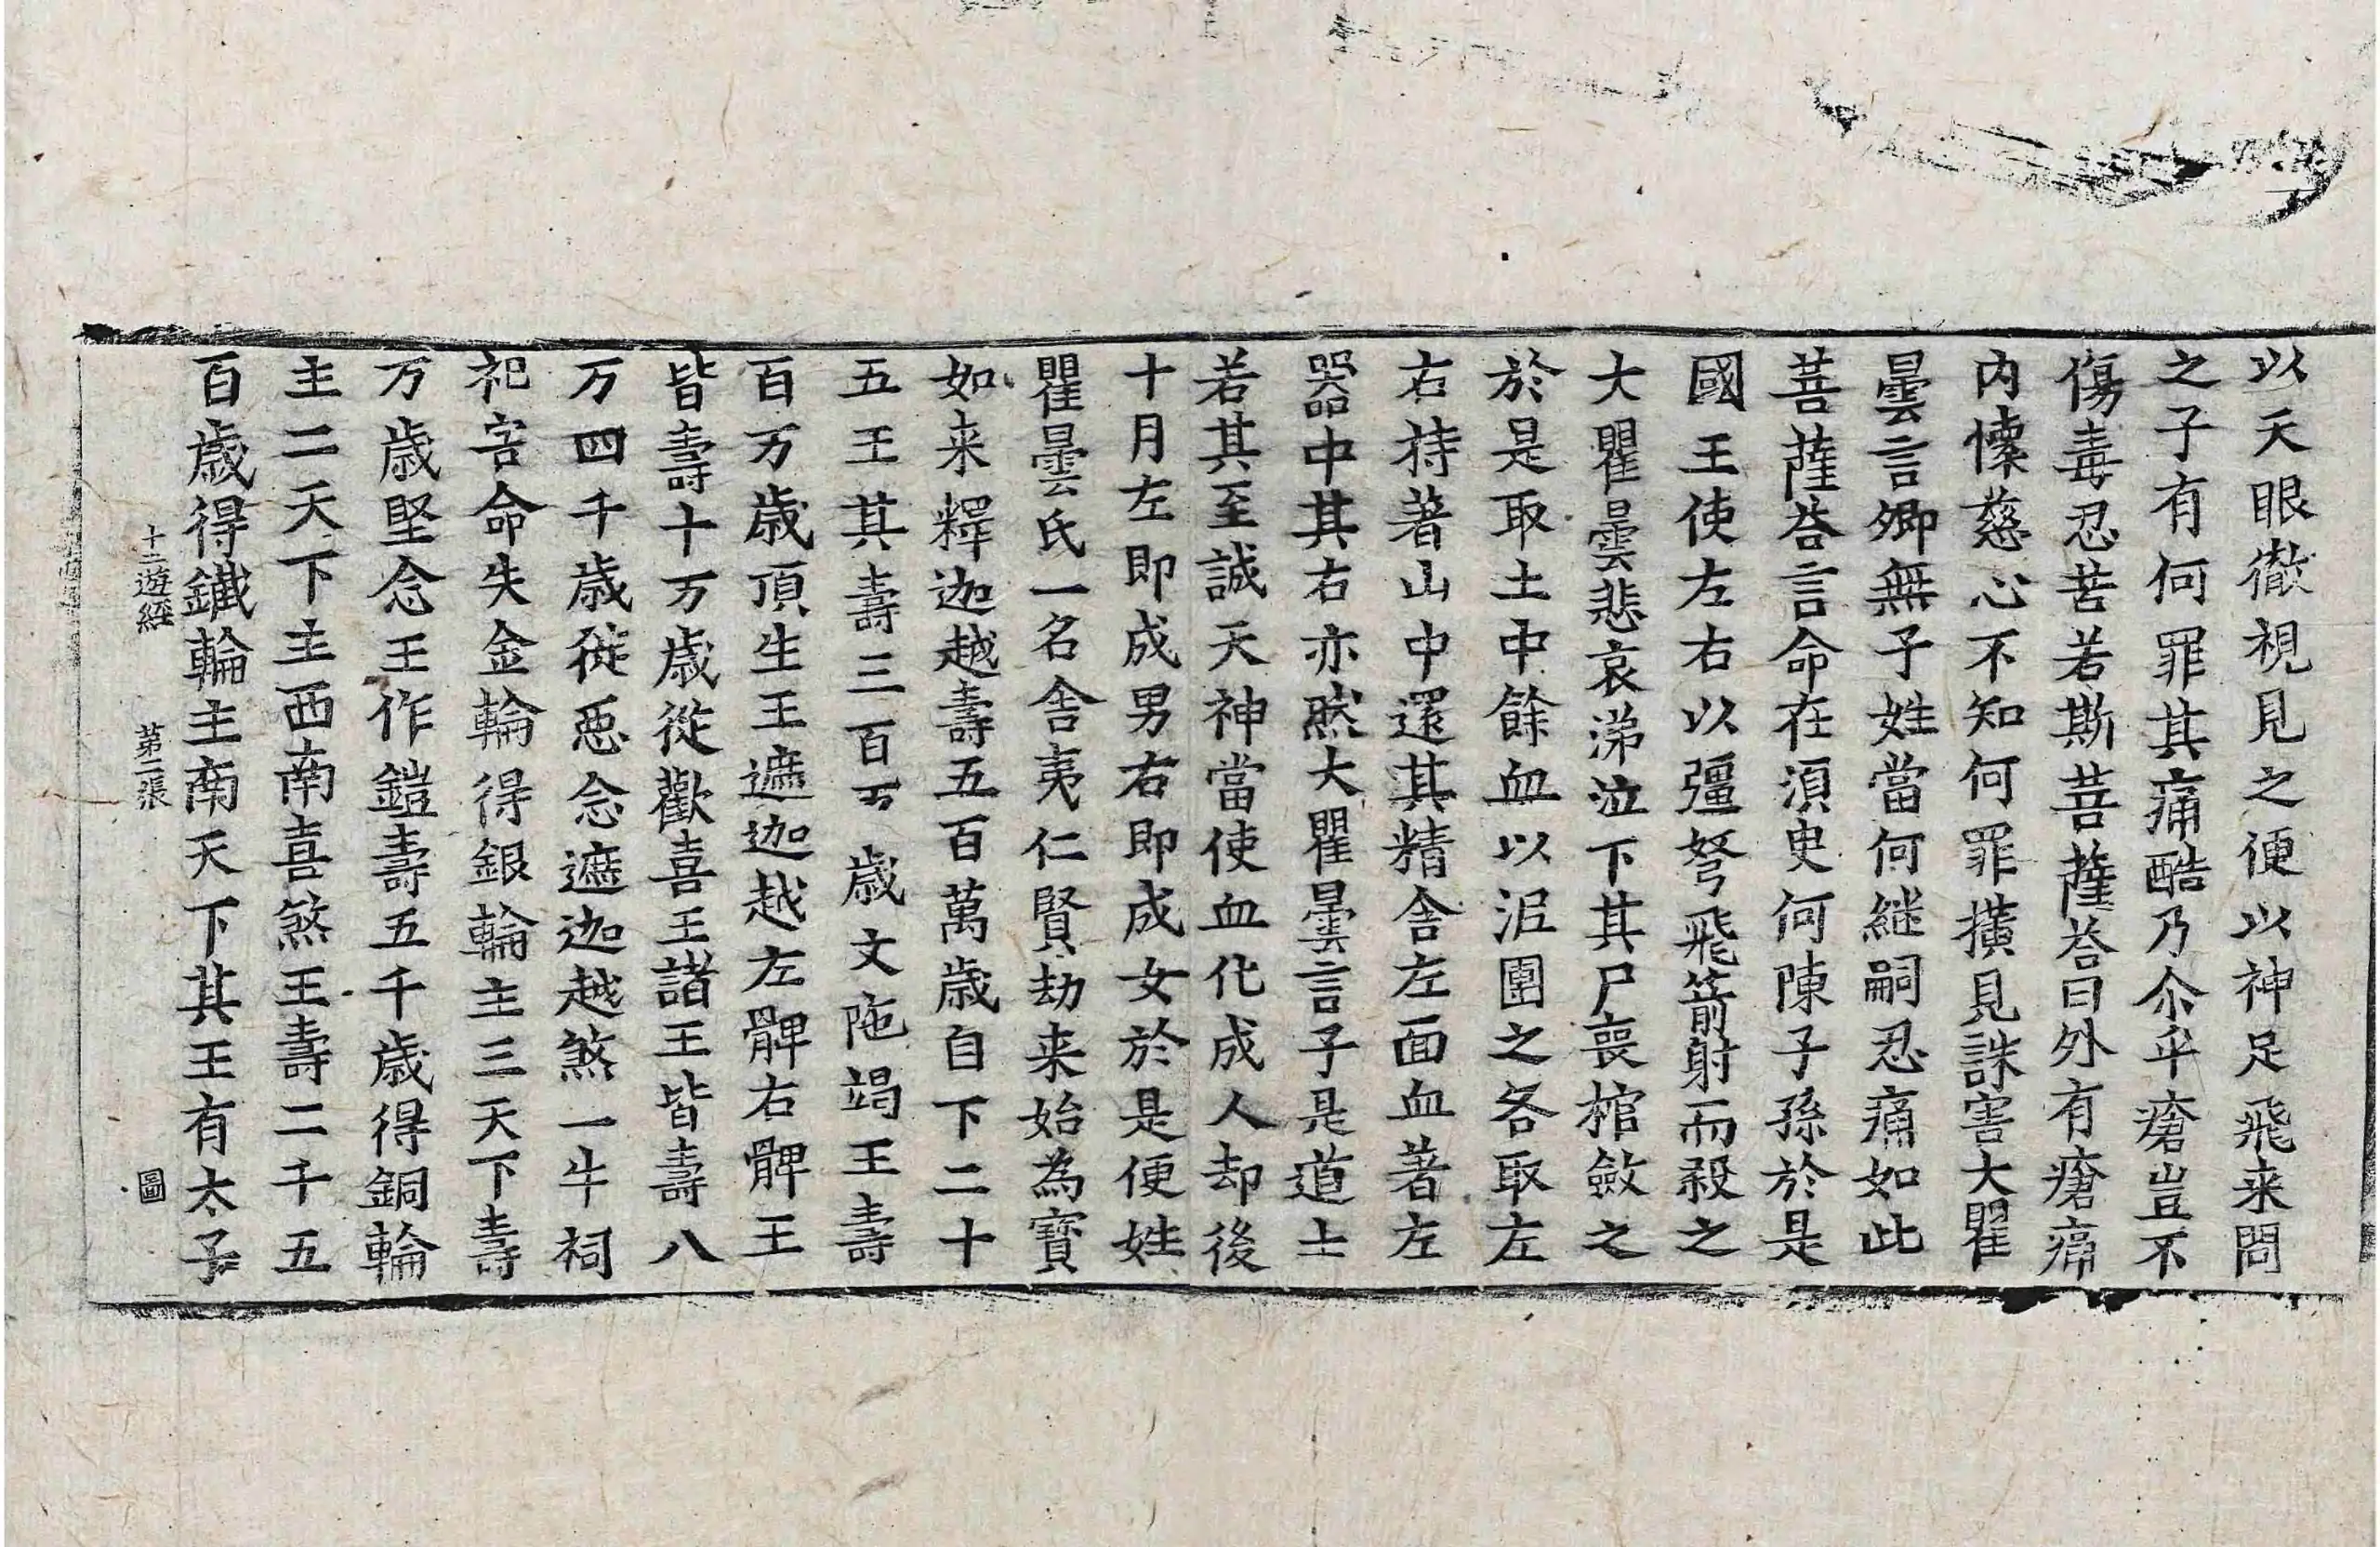 以天眼徹視見之便以神足飛来問
之子有何罪其痛酷乃尒乎瘡豈不
傷毒忍苦若斯菩薩荅曰外有瘡痛
内懷慈心不知何罪撗見誅害大瞿
曇言卿無子姓當何継嗣忍痛如此
菩薩荅言命在湏臾何陳子孫於是
國王使左右以彊弩飛箭射而殺之
大瞿曇悲哀涕泣下其尸喪棺斂之
於是取土中餘血以泥團之各取左
右持著山中還其精舍左面血著左
器中其右亦然大瞿曇言子是道士
若其至誠天神當使血化成人却後
十月左即成男右即成女於是便姓
瞿曇氏一名舎夷仁賢劫来始為寶
如来釋迦越壽五百萬歳自下二十
五王其壽三百万歳文陁竭王壽
百万歳頂生王遮迦越左髀右髀王
皆壽十万歳從歡喜王諸王皆壽八
万四千歳從惡念遮迦越煞一牛祠
祀害命失金輪得銀輪主三天下壽
万歳堅念王作鎧壽五千歳得銅輪
主二天下主西南喜煞王壽二千五
百歳得鐵輪主南天下其王有太子
十二遊経 第二張 圖